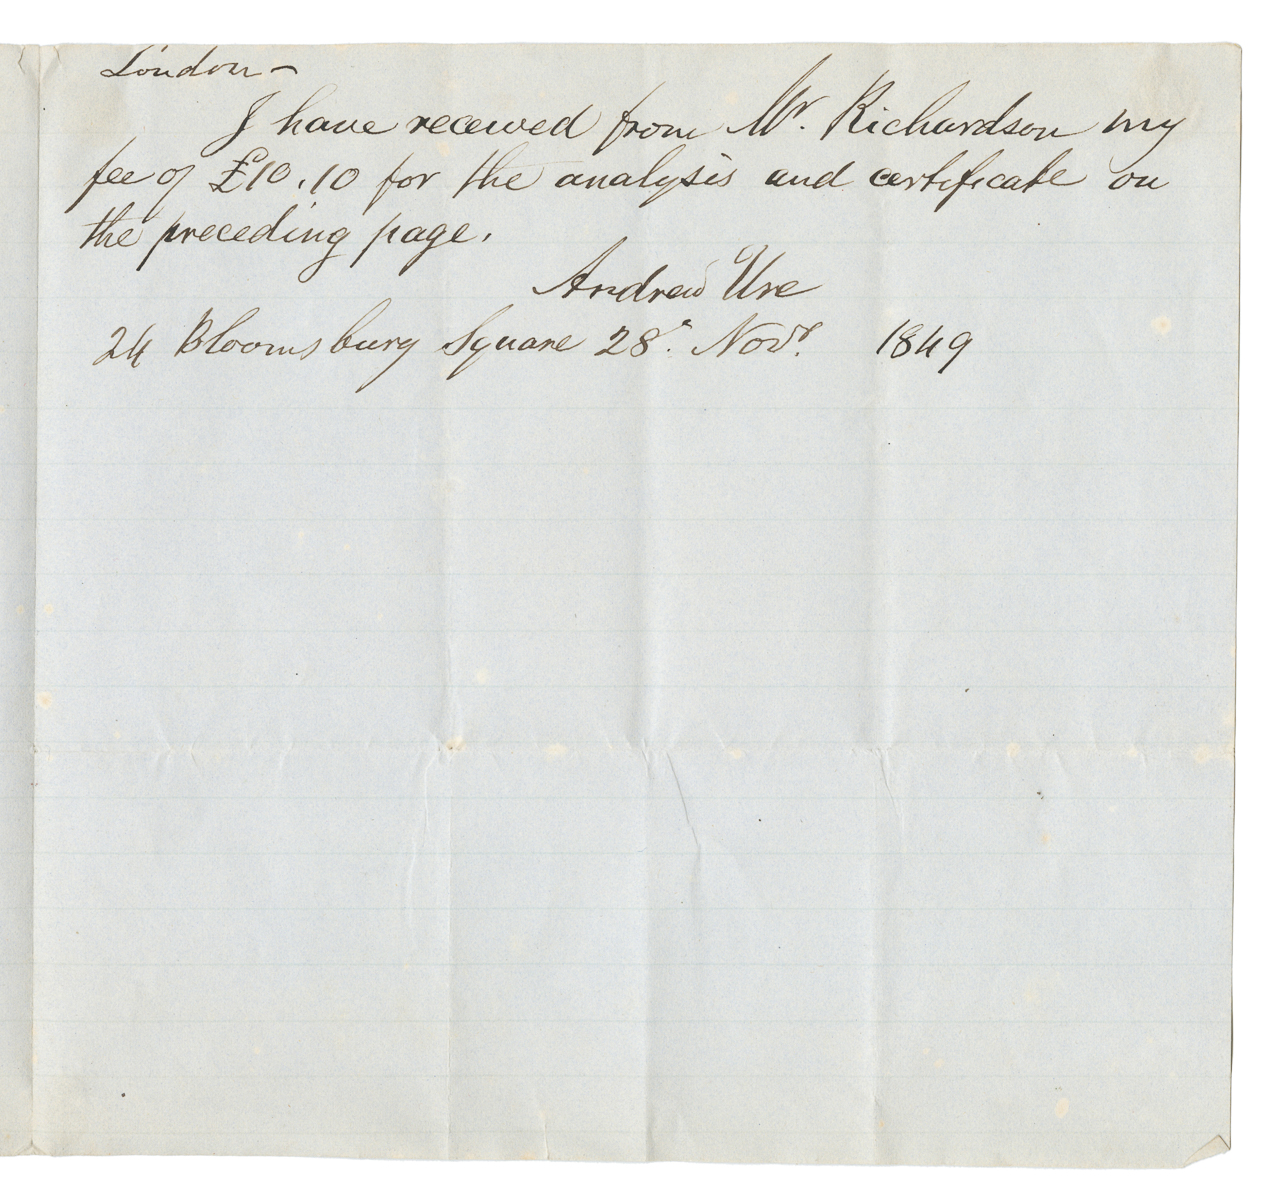 London –
I have received from Mr. Richardson my
fee of £10.10 for the analysis and certificate on
the preceding page.
Andrew Ure
24 Bloomsbury Square 28. Novr. 1849